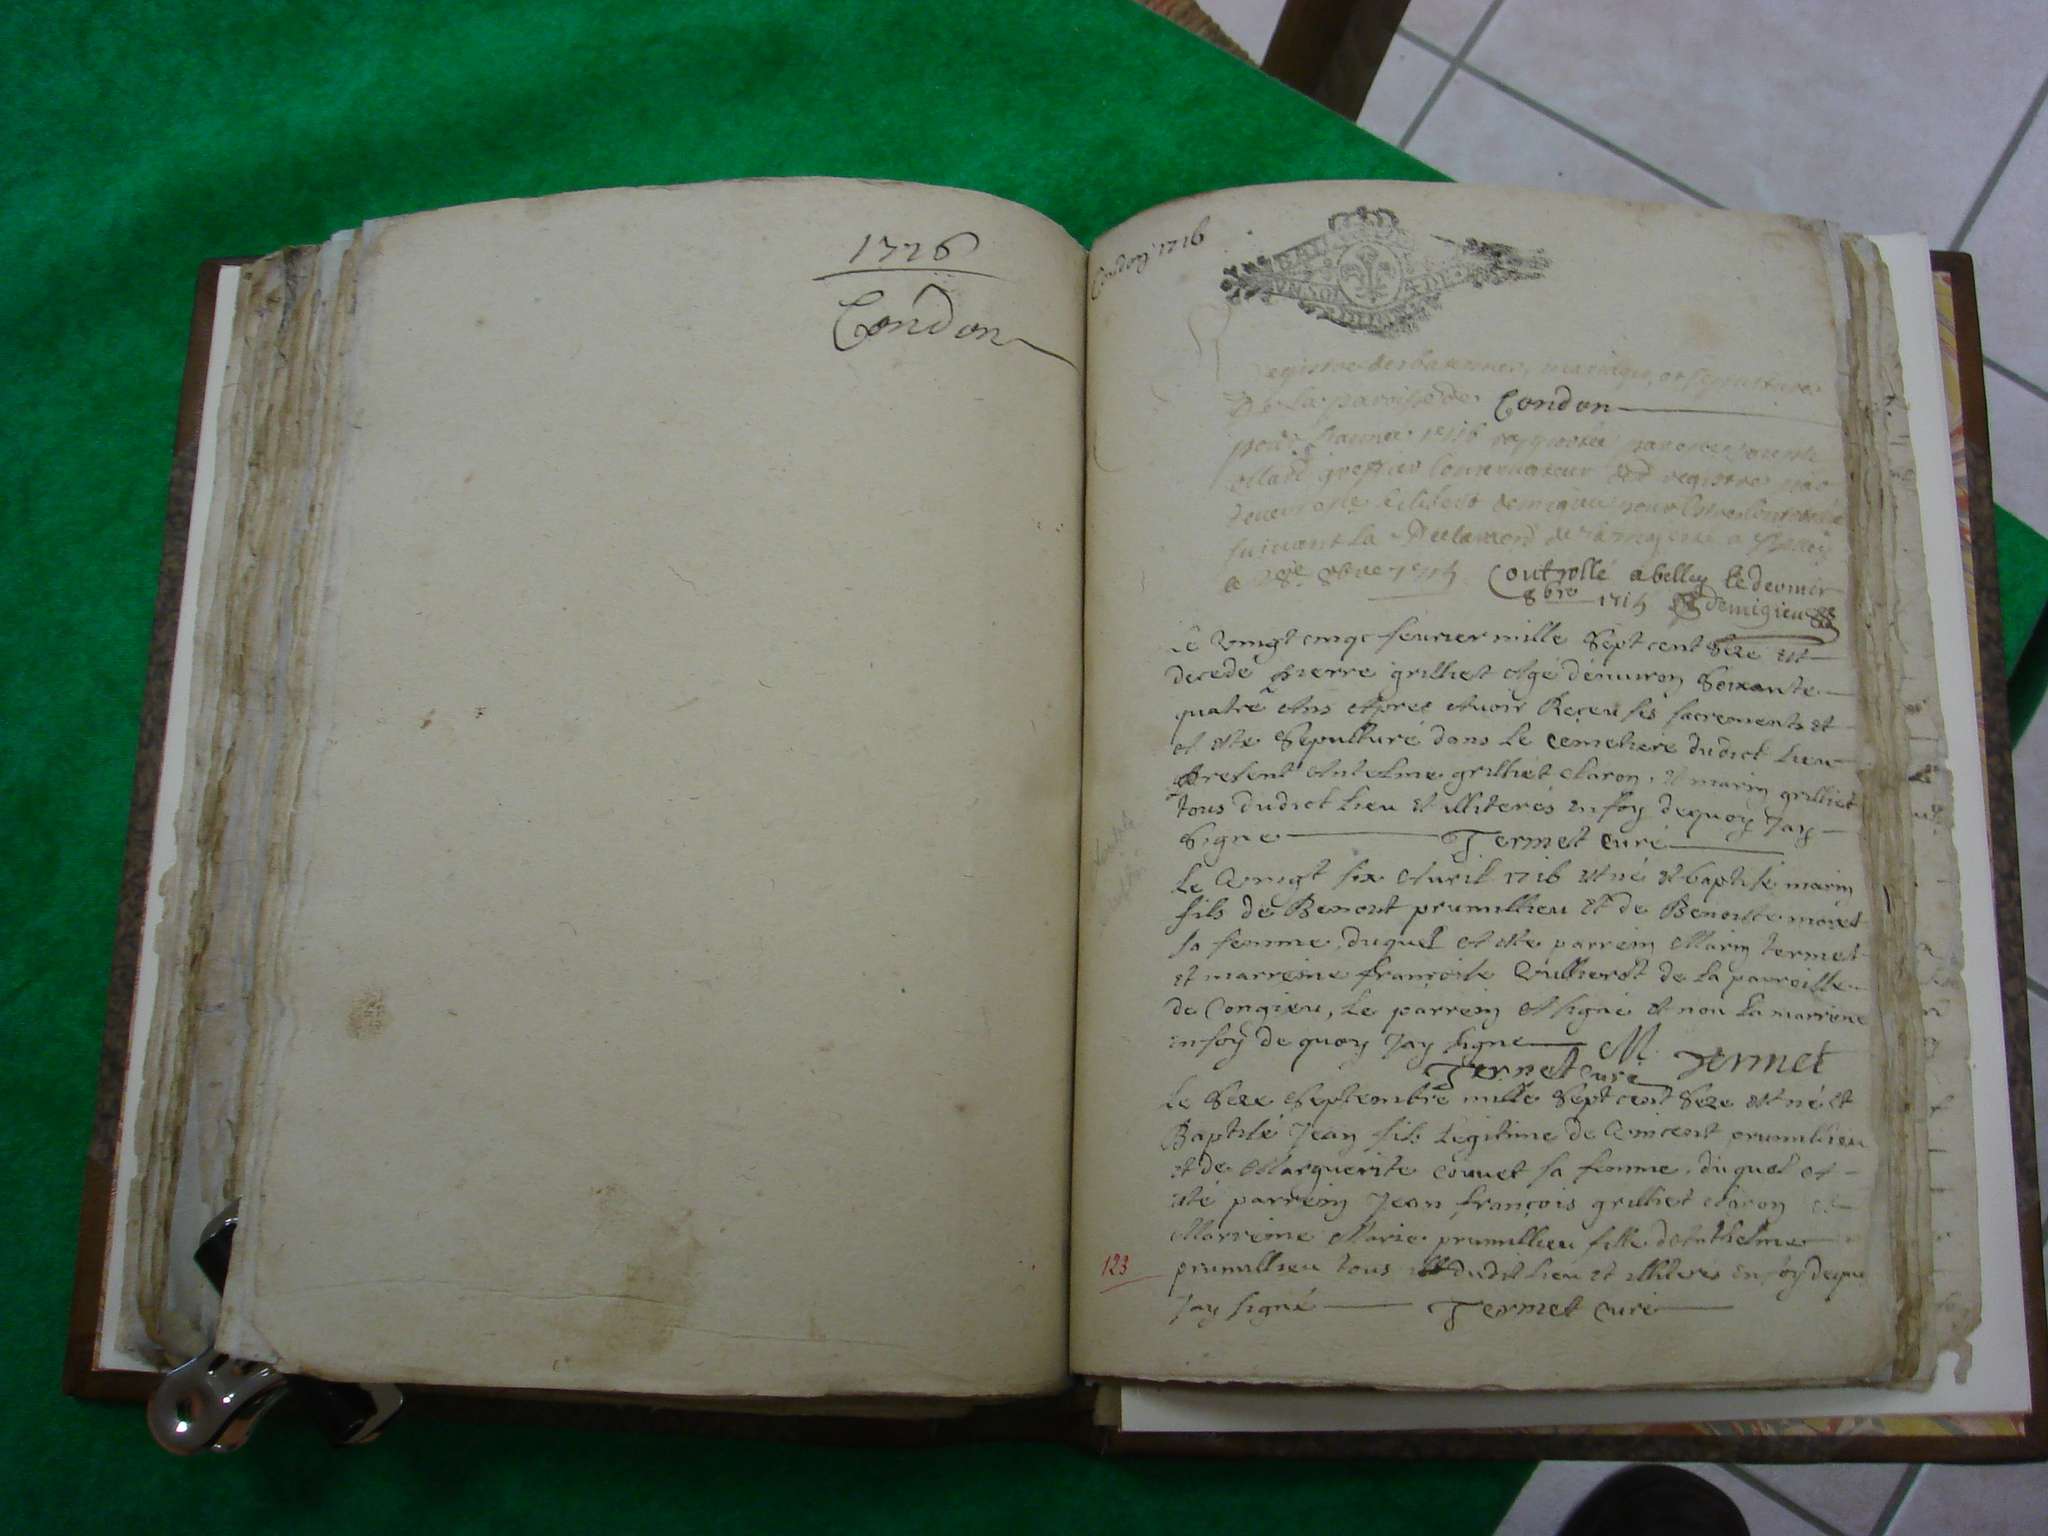 1716
Condon
Condon 1716
Registre des baptemes, mariages, et sepultures
De la paroisse de Condon
pour l'année 1716
greffier Conservateur des registres
suivant la Declaration de sa majesté
Controllé a belley le dernier
8bre 1715 Demigieu
Le Vingt cinqe février mille Sept cent Seze est
decedé pierre grilliet Agé dénuiron Soixante
quatre Ans Apres Auoir Reçeu ses sacrements et
A esté Sepulturé dans le Cemetiere dudict lieu
present Antelme grilliet claron, et marin grilliet
tous dudict lieu et illiterés en foy dequoy Jay
Signe Termet curé
Le Vingt six Auril 1716 est né et baptisé marin
fils de Benoit prumillieu et de Benoite moret
sa femme, duquel A esté parrein Marin termet
et marreine françoise Vullierot de la parroisse
de Congieu, le parrein A signé et non la marrine
en foy de quoy Jay signe M. Termet
Termet curé
Le Seze Septembre mille Sept cent Seze est né et
Baptisé Jean fils Legitime de Vincent prumillieu
et de Marguerite couuet sa femme, duquel A
esté parrein Jean françois grilliet claron et
Marreine Marie prumillieu fille dAnthelme
prumillieu tous dudit lieu et illiterés en foy dequoy
Jay signé Termet curé
123